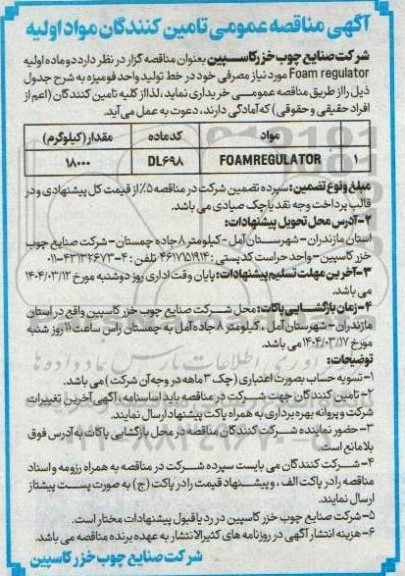 آگهی مناقصه عمومی تامین کنندگان مواد اولیه
شرکت صنایع چوب خزر کاسپین بعنوان مناقصه گزار در نظر دارد دو ماده اولیه
Foam regulator مورد نیاز مصرفی خود در خط تولید واحد فومیزه به شرح جدول
ذیل را از طریق مناقصه عمومی خریداری نماید، لذا از کلیه تامین کنندگان (اعم از
افراد حقیقی و حقوقی) که آمادگی دارند، دعوت به عمل می آید.
مواد کد ماده مقدار (کیلوگرم)
۱ FOAMREGULATOR DL۶۹۸ ۱۸۰۰۰
مبلغ و نوع تضمین: سپرده تضمین شرکت در مناقصه ۵٪ از قیمت کل پیشنهادی و در
قالب پرداخت وجه نقد یا چک صیادی می باشد.
۲-آدرس محل تحویل پیشنهادات:
استان مازندران - شهرستان آمل - کیلومتر ۸ جاده چمستان - شرکت صنایع چوب
خزر کاسپین - واحد حراست کدپستی: ۴۶۱۷۱۵۱۹۱۴ تلفن: ۴-۴۳۱۳۲۶۷۳-۰۱۱
۳-آخرین مهلت تسلیم پیشنهادات: پایان وقت اداری روز دوشنبه مورخ ۱۴۰۴/۰۳/۱۲
می باشد.
۴-زمان بازگشایی پاکات: محل شرکت صنایع چوب خزر کاسپین واقع در استان
مازندران - شهرستان آمل، کیلومتر ۸ جاده آمل به چمستان راس ساعت ۱۱ روز شنبه
مورخ ۱۴۰۴/۰۳/۱۷ می باشد.
توضیحات:
۱-تسویه حساب بصورت اعتباری (چک ۳ ماهه در وجه آن شرکت) می باشد.
۲-تامین کنندگان جهت شرکت در مناقصه باید اساسنامه، آگهی آخرین تغییرات
شرکت و پروانه بهره برداری به همراه پاکت پیشنهاد ارسال نمایند.
۳-حضور نماینده شرکت کنندگان مناقصه در محل بازگشایی پاکات به آدرس فوق
بلامانع است.
۴-شرکت کنندگان می بایست سپرده شرکت در مناقصه به همراه رزومه و اسناد
مناقصه را در پاکت الف، و پیشنهاد قیمت را در پاکت (ج) به صورت پست پیشتاز
ارسال نمایند.
۵-شرکت صنایع چوب خزر کاسپین در رد یا قبول پیشنهادات مختار است.
۶-هزینه انتشار آگهی در روزنامه های کثیرالانتشار به عهده برنده مناقصه می باشد.
شرکت صنایع چوب خزر کاسپین